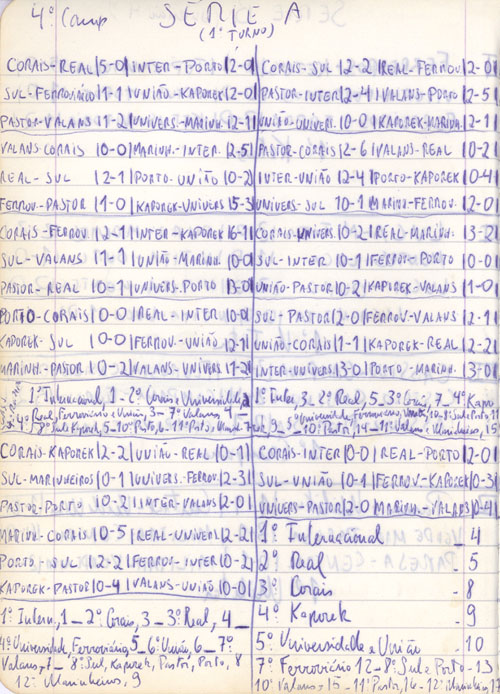 4º Camp SÉRIE A
(1º TURNO)
CORAIS-REAL|5-0|INTER-PORTO|2-0
SUL-FERROVIÁRIO|1-1|UNIÃO-KAPOREK|2-0
PASTOR-VALANS|1-2|UNIVERS-MARINH.|2-1
VALANS-CORAIS|0-0|MARINH.-INTER.|2-5
REAL-SUL|2-1|PORTO-UNIÃO|0-2
FERROV-PASTOR|1-0|KAPOREK-UNIVERS|5-3
CORAIS-FERROV|2-1|INTER-KAPOREK|6-1
SUL-VALANS|1-1|UNIÃO-MARINH.|0-0
PASTOR-REAL|0-1|UNIVERS-PORTO
PORTO-CORAIS|0-0|REAL-INTER|0-0
KAPOREK-SUL|0-0|FERROV-UNIÃO|2-1
MARINH-PASTOR|0-2|VALANS-UNIVERS
1º Internacional, 1-2º Corais e Universidade,
4º Real, Ferroviário e União, 3-7º Valans, 4-
8º Sul e Kaporek, 5-10º Porto, 6-11º Pasto
CORAIS-KAPOREK|2-2|UNIÃO-REAL|0-1
SUL-MARINHEIROS|0-1|UNIVERS-FERROV|2-3
PASTOR-PORTO|0-2|INTER-VALANS|2-0
MARINH-CORAIS|0-5|REAL-UNIVERS|2-2
PORTO-SUL|2-2|FERROV-INTER|0-2
KAPOREK-PASTOR|0-4|VALANS-UNIÃO|0-0
1º Intern, 1_2º Corais, 3_3º Real, 4_
4º Universidade, Ferroviário, 5_6º União, 6_7º
Valans, 7_8º Sul, Kaporek, Pastor, Porto, 8
12º Marinheiros, 9
CORAIS-SUL|2-2|REAL-FERROV|2-0
PASTOR-INTER|2-4|VALANS-PORTO|2-5
UNIÃO-UNIVER|0-0|KAPOREK-MARINH|2-1
PASTOR-CORAIS|2-6|VALANS-REAL|0-2
INTER-UNIÃO|2-4|PORTO-KAPOREK|0-4
UNIVERS-SUL|0-1|MARINH-FERROV.|2-0
CORAIS-UNIVERS|0-2|REAL-MARINH.|3-2
SUL-INTER|0-1|FERROV-PORTO|0-0
UNIÃO-PASTOR|0-2|KAPOREK-VALANS|1-0
SUL-PASTOR|2-0|FERROV-VALANS|2-1
UNIÃO-CORAIS|1-1|KAPOREK-REAL|2-2
INTER-UNIVERS|3-0|PORTO-MARINH.|3-0
1º Inter, 3_2º Real, 5_3º Corais, 7_4º Kapo
CORAIS-INTER|0-0|REAL-PORTO|2-0
SUL-UNIÃO|0-1|FERROV-KAPOREK|0-3
UNIVERS-PASTOR|2-0|MARINH-VALANS|0-4
1º Internacional 4
2º Real - 5
3º Corais - 8
4º Kaporek - 9
5º Universidade e União - 10
7º Ferroviário 12-8º Sul e Porto-13
10º Valans-15-11º Pastor 14-12º Marinheiros